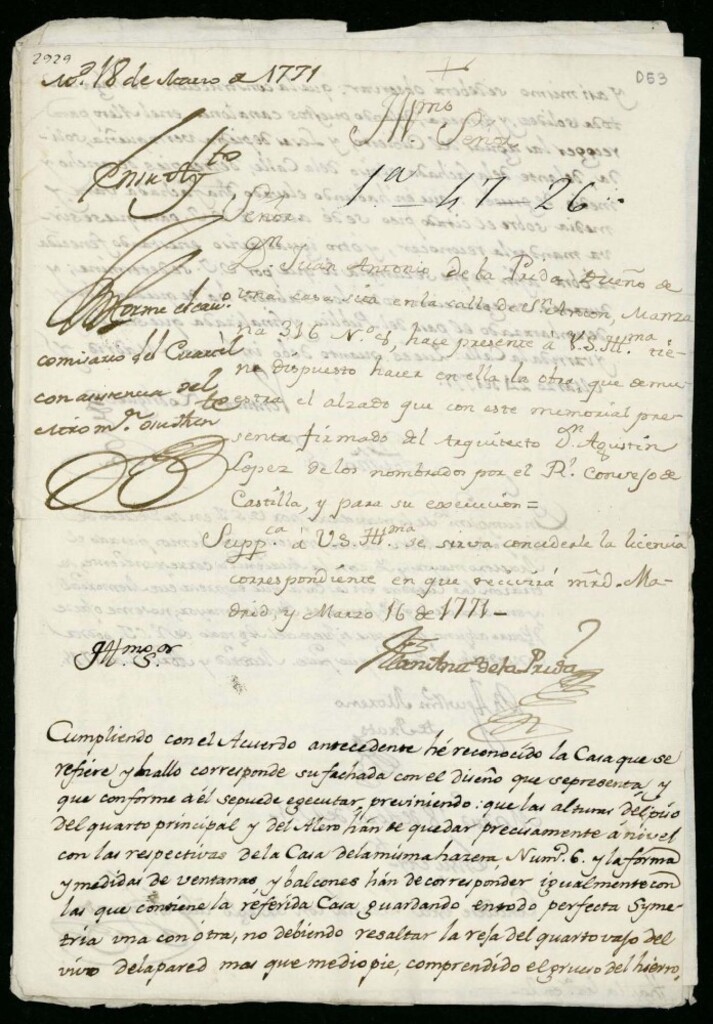 2929
D53
M.d 18 de Marzo de 1771
+
Yll.mo
Señor
1a 47 - 26
Señor
D.n Juan Antonio de la Prida Dueño de
una casa sita en la calle de S.n Anton, Manza
na 316 N.o 8, hace presente à V.S. Ill.ma tie-
ne dispuesto hacer en ella la obra, que demu-
estra el alzado que con este memorial pre-
senta firmado del Arquitecto D.n Agustin
Lopez de los nombrados por el R.l Consejo de
Castilla, y para su execucion=
Supp.ca à V.S. Ill.ma se sirva concederle la licencia
correspondiente en que recivirá mrd. Ma-
drid, y Marzo 16 de 1771-
Ynforme el cav.o
comisario del Cuartel
con asistencia del
Ill.mo S.or
de la Prida
Cumpliendo con el Acuerdo antecedente hé reconocido la Casa que se
refiere y hallo corresponde su fachada con el diseño que sepresenta, y
que conforme aél sepuede egecutar, previniendo: que las alturas del piso
del quarto principal y del Alero hán de quedar precisamente á nivel
con las respectivas de la Casa delamisma hazera Num.o 6. y la forma
y medidas de ventanas, y balcones hán de corresponder igualmente con
las que contiene la réferida Casa guardando entodo perfecta Syme-
tria una con ótra, no debiendo resaltar la reja del quarto vajo del
vivo delapared mas que mediopie, comprendido el grueso del hierro,